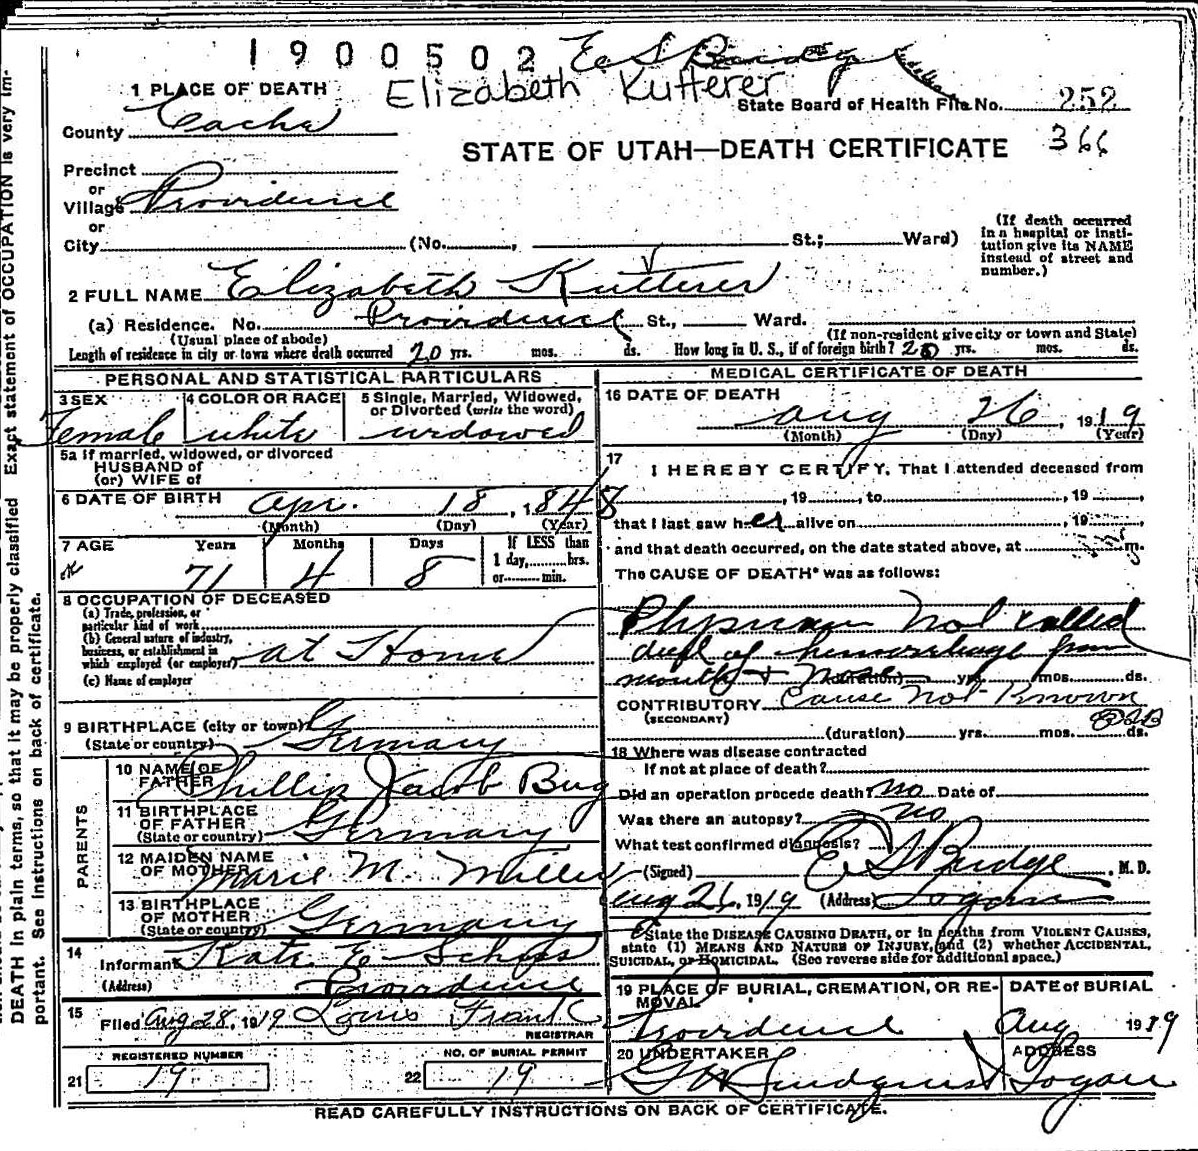 1900502 E S Budge
Elizabeth Kutterer
1 PLACE OF DEATH
State Board of Health File No. 252
County Cache
STATE OF UTAH—DEATH CERTIFICATE 366
Precinct
or
Village Providence
or
City (No. , St.; Ward)
(If death occurred
in a hospital or insti-
tution give its NAME
instead of street and
number.)
2 FULL NAME Elizabeth Kutterer
(a) Residence. No. Providence St., Ward.
(Usual place of abode) (If non-resident give city or town and State)
Length of residence in city or town where death occurred 20 yrs. mos. ds. How long in U. S., if of foreign birth? 20 yrs. mos. ds.
PERSONAL AND STATISTICAL PARTICULARS
3 SEX 4 COLOR OR RACE 5 Single, Married, Widowed,
or Divorced (write the word)
Female white widowed
5a If married, widowed, or divorced
HUSBAND of
(or) WIFE of
6 DATE OF BIRTH Apr. 18, 1848
(Month) (Day) (Year)
7 AGE Years Months Days If LESS than
1 day, hrs.
71 4 8 or min.
8 OCCUPATION OF DECEASED
(a) Trade, profession, or
particular kind of work
(b) General nature of industry,
business, or establishment in
which employed (or employer) at Home
(c) Name of employer
9 BIRTHPLACE (city or town)
(State or country) Germany
PARENTS
10 NAME OF
FATHER Phillip Jacob Bug
11 BIRTHPLACE
OF FATHER
(State or country) Germany
12 MAIDEN NAME
OF MOTHER Marie M. Miller
13 BIRTHPLACE
OF MOTHER
(State or country) Germany
14
Informant Kate E
(Address) Providence
15
Filed Aug 28, 1919 Louis Frank
REGISTRAR
REGISTERED NUMBER NO. OF BURIAL PERMIT
21 19 22 19
MEDICAL CERTIFICATE OF DEATH
16 DATE OF DEATH
Aug 26, 1919
(Month) (Day) (Year)
17
I HEREBY CERTIFY, That I attended deceased from
, 19 , to , 19 ,
that I last saw her alive on , 19 ,
and that death occurred, on the date stated above, at m.
The CAUSE OF DEATH* was as follows:
Physician Not called
died of hemorrhage from
mouth + nose (duration) yrs. mos. ds.
CONTRIBUTORY Cause Not Known
(SECONDARY)
(duration) yrs. mos. ds.
18 Where was disease contracted
If not at place of death?
Did an operation precede death? no Date of
Was there an autopsy? no
What test confirmed diagnosis?
(Signed) E S Budge, M. D.
Aug 26, 1919 (Address) Logan
*State the DISEASE CAUSING DEATH, or in deaths from VIOLENT CAUSES,
state (1) MEANS AND NATURE OF INJURY, and (2) whether ACCIDENTAL,
SUICIDAL, or HOMICIDAL. (See reverse side for additional space.)
19 PLACE OF BURIAL, CREMATION, OR RE- DATE of BURIAL
MOVAL
Providence Aug 1919
20 UNDERTAKER ADDRESS
G W Lindquist Logan
READ CAREFULLY INSTRUCTIONS ON BACK OF CERTIFICATE.
DEATH in plain terms, so that it may be properly classified Exact statement of OCCUPATION is very im-
portant. See instructions on back of certificate.